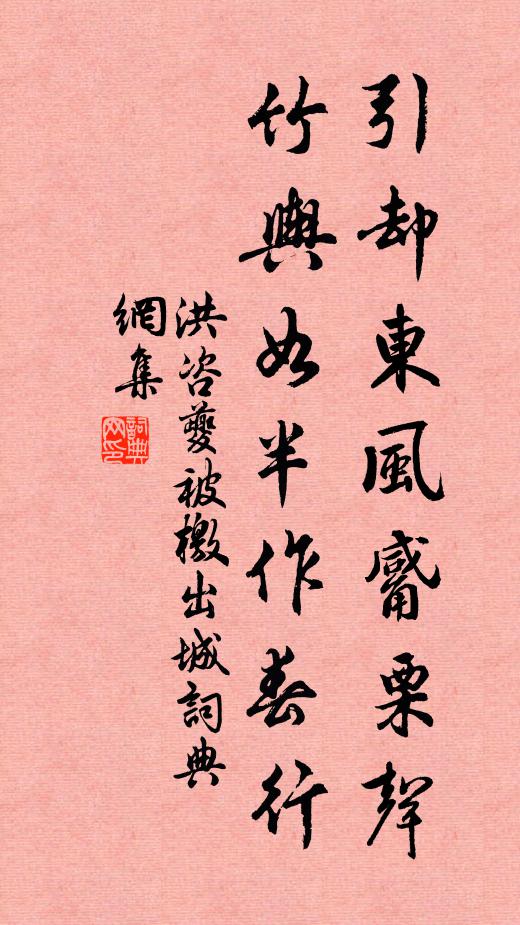 引却東風觱栗聲
竹輿如半作春行
洪咨夔被檄出城詞典
網集
詞典
网印